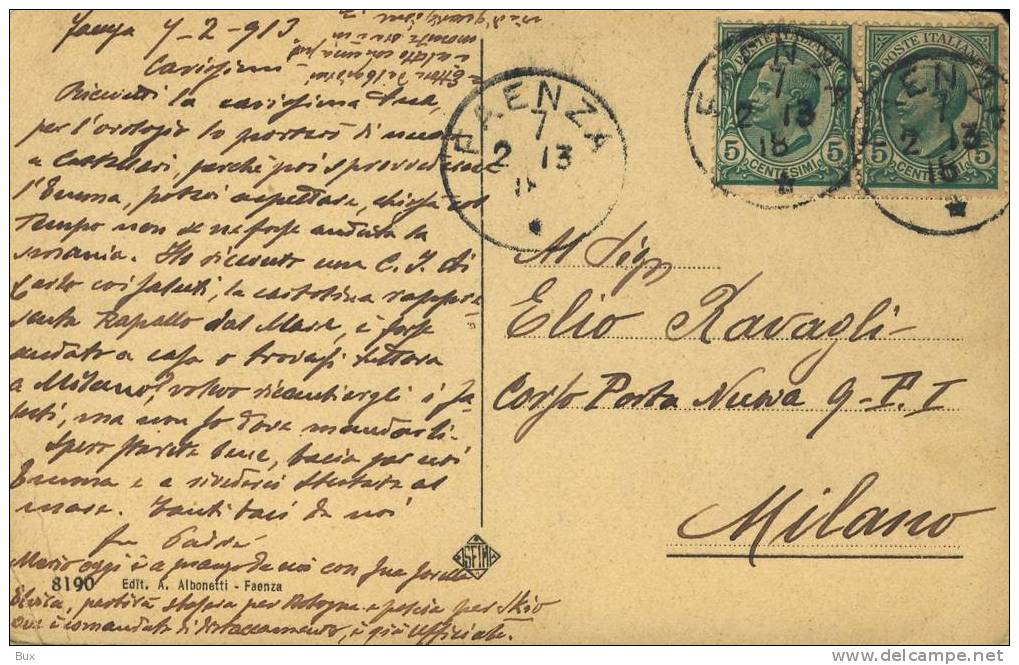 Faenza 7-2-913
Carissimi
Ricevetti la carissima tua,
per l'orologio lo porterò di nuovo
a Castellari, perchè poi sprovvedere
l'Emma, potevi aspettare, chissà col
tempo non se ne fosse andata la
smania. Ho ricevuto una C. I. di
Carlo coi saluti, la cartolina rappre-
senta Rapallo dal Mare, è forse
andato a casa o trovasi tuttora
a Milano? volevo ricambiargli i sa-
luti, ma non so dove mandarli-
Spero starete bene, bacia per noi
Emma e a rivederci al
mare. Tanti baci da noi
Padre
Mario oggi è a mangiare da noi con sua sorella
Elvira, partirà stasera per Bologna e poscia per Skio
ove è comandato di distaccamento, è già Ufficiale.
8190 Edit. A. Albonetti - Faenza
ISFIM
FAENZA
7
2 13
POSTE ITALIANE
5 CENTESIMI 5
POSTE ITALIANE
5 CENTESIMI 5
FAENZA
7
2 13
16
FAENZA
7
2 13
16
Al Sig
Elio Ravagli-
Corso Porta Nuova 9-P. I
Milano
Bux
delcampe.net